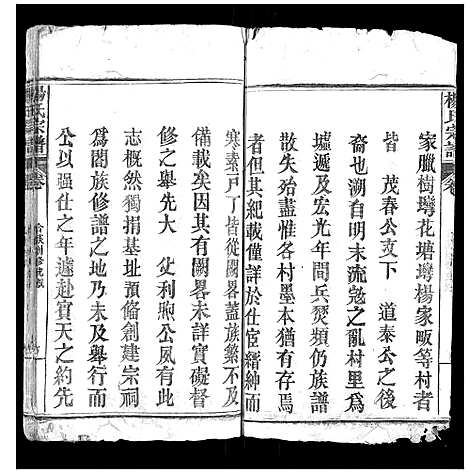 楊氏宗譜 卷
家臘樹塆花塘塆楊家畈等村者
皆 茂春公支下 道泰公之後
裔也溯自明末流寇之亂村里為
墟遞及宏光年間兵燹頻仍族譜
散失殆盡惟各村墨本猶有存焉
者但其紀載僅詳於仕宦縉紳而
寒素戸丁皆從闕畧蓋族繁不及
備載矣因其有闕畧未詳實礙督
修之舉先大 父利煦公夙有此
志概然獨捐基址預偹創建宗祠
為闔族修譜之地乃未及舉行而
公以强仕之年遽赴賓天之約先
楊氏宗譜 卷